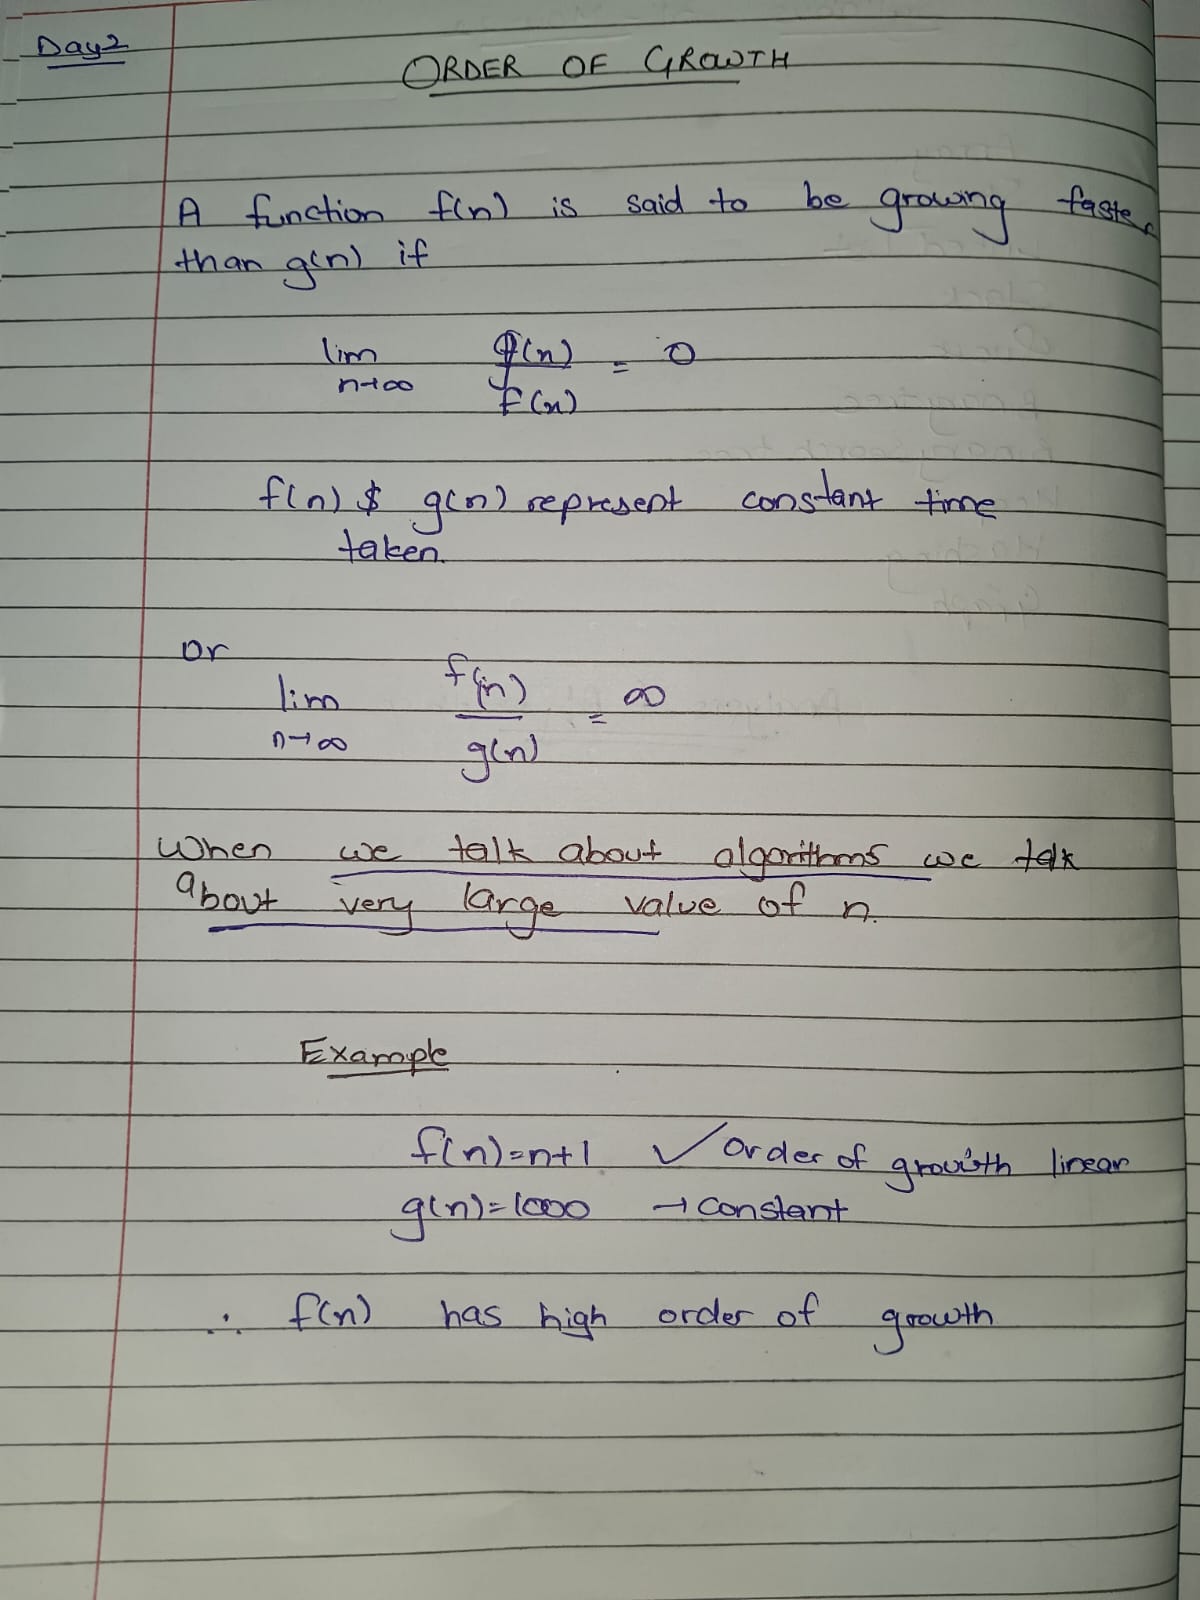 Day 2
ORDER OF GROWTH
A function f(n) is said to be growing faster
than g(n) if
lim g(n) = 0
n→∞ f(n)
f(n) $ g(n) represent constant time
taken.
or
lim f(n) = ∞
n→∞ g(n)
When we talk about algorithms we talk
about very large value of n.
Example
f(n)=n+1 ✓ Order of growth linear
g(n)=1000 → Constant
∴ f(n) has high order of growth